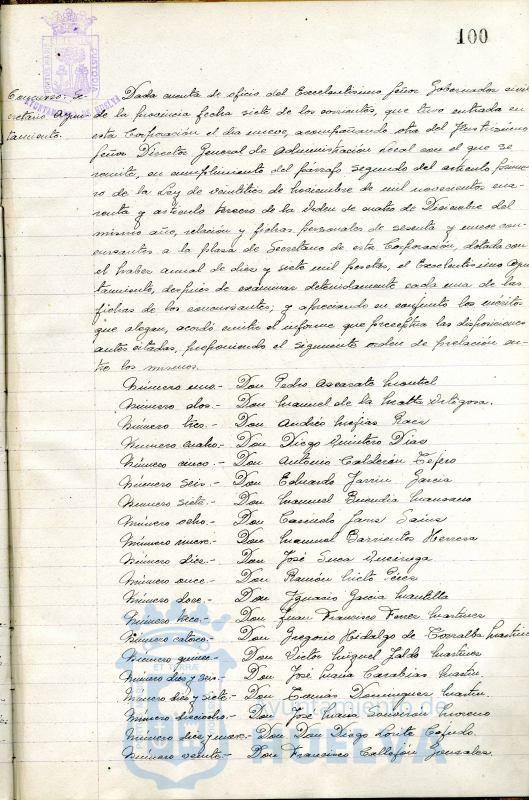 100
PORTUS MARIS
ET TERRÆ CUSTODIA
AYUNTAMIENTO DE HUELVA
Concurso. Se-
cretario Ayun-
tamiento.
Dada cuenta de oficio del Excelentísimo Señor Gobernador civil
de la provincia fecha siete de los corrientes, que tuvo entrada en
esta Corporación el dia nueve, acompañando otro del Ilustrísimo
Señor Director General de Administración Local con el que se
remite, en cumplimiento del párrafo segundo del artículo prime-
ro de la Ley de veintitres de noviembre de mil novecientos cua-
renta y artículo tercero de la Orden de cuatro de Diciembre del
mismo año, relación y fichas personales de sesenta y nueve con-
cursantes a la plaza de Secretario de esta Corporación, dotada con
el haber anual de diez y siete mil pesetas, el Excelentísimo Ayun-
tamiento, después de examinar detenidamente cada una de las
fichas de los concursantes; y apreciando en conjunto los méritos
que alegan, acordó emitir el informe que preceptúa las disposiciones
antes citadas, proponiendo el siguiente orden de prelación en-
tre los mismos.
Número uno.- Don Pedro
Número dos.- Don Manuel de la Matta
Número tres.- Don Andrés Mejías
Número cuatro.- Don Diego Quintero Dias
Número cinco.- Don Antonio Calderón Tejero
Número seis.- Don Eduardo Jarrin Garcia
Número siete.- Don Manuel Buendia Manzano
Número ocho.- Don Sans Sains
Número nueve.- Don Manuel Barrientos Herrera
Número diez.- Don José Queiruga
Número once.- Don Ramón Nieto Pérez
Número doce.- Don Ignacio Garcia Mantilla
Número trece.- Don Juan Francisco Martinez
Número catorce.- Don Gregorio Hidalgo de Torralba Martinez
Número quince.- Don Victor Miguel Jalda Martinez
Número diez y seis.- Don José Maria Carabias Martin
Número diez y siete.- Don Tomás Dominguez Martin
Número dieciocho.- Don José Maria Souviron Moreno
Número diez y nueve.- Don Don Diego
Número veinte.- Don Francisco Callejón Gonzales.
Ayuntamiento de
HUELVA